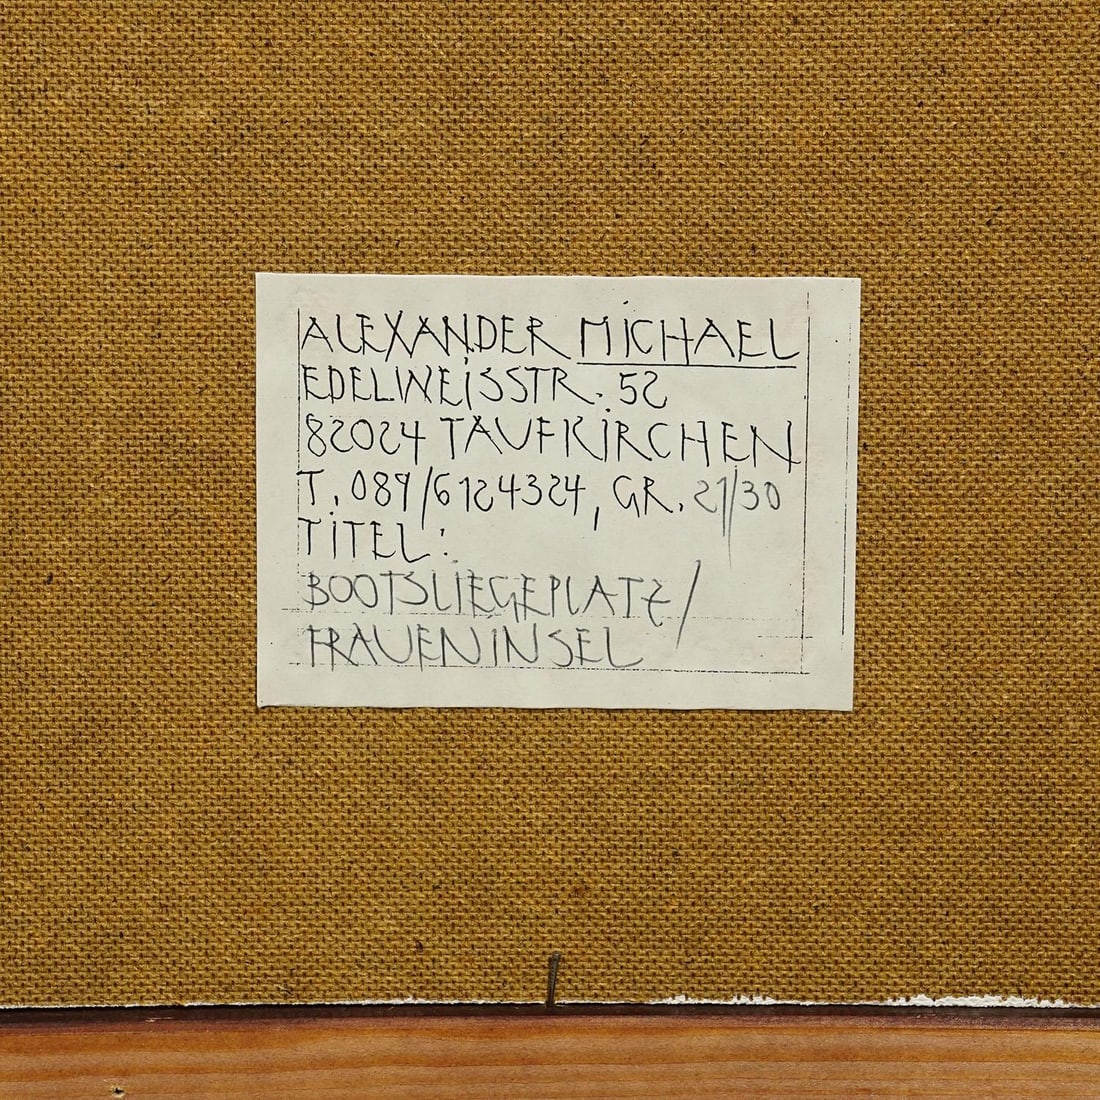 ALEXANDER MICHAEL
EDELWEISSTR. 52
82024 TAUFKIRCHEN
T. 089/6124324, GR. 21/30
TITEL:
BOOTSLIEGEPLATZ/
FRAUENINSEL